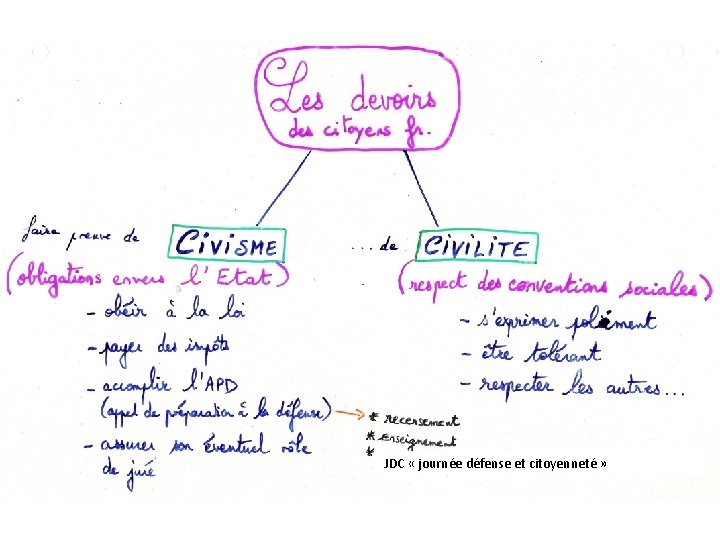 Les devoirs
des citoyens fr.
faire preuve de CIVISME
(obligations envers l'Etat)
- obéir à la loi
- payer des impôts
- accomplir l'APD
(appel de préparation à la défense) → * recensement
* enseignement
* JDC « journée défense et citoyenneté »
- assurer son éventuel rôle
de juré
... de CIVILITE
(respect des conventions sociales)
- s'exprimer poliment
- être tolérant
- respecter les autres...